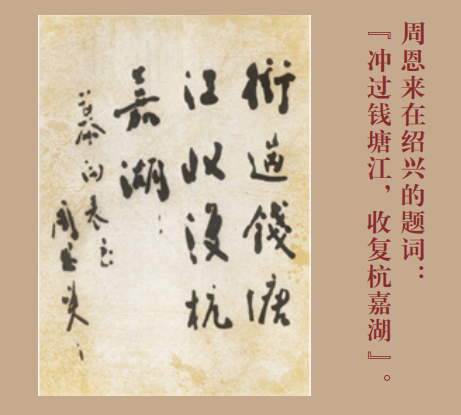 周恩来在绍兴的题词：
『冲过钱塘江，收复杭嘉湖』。
衝過錢塘
江收復杭
嘉湖
慕向表弟
周恩来